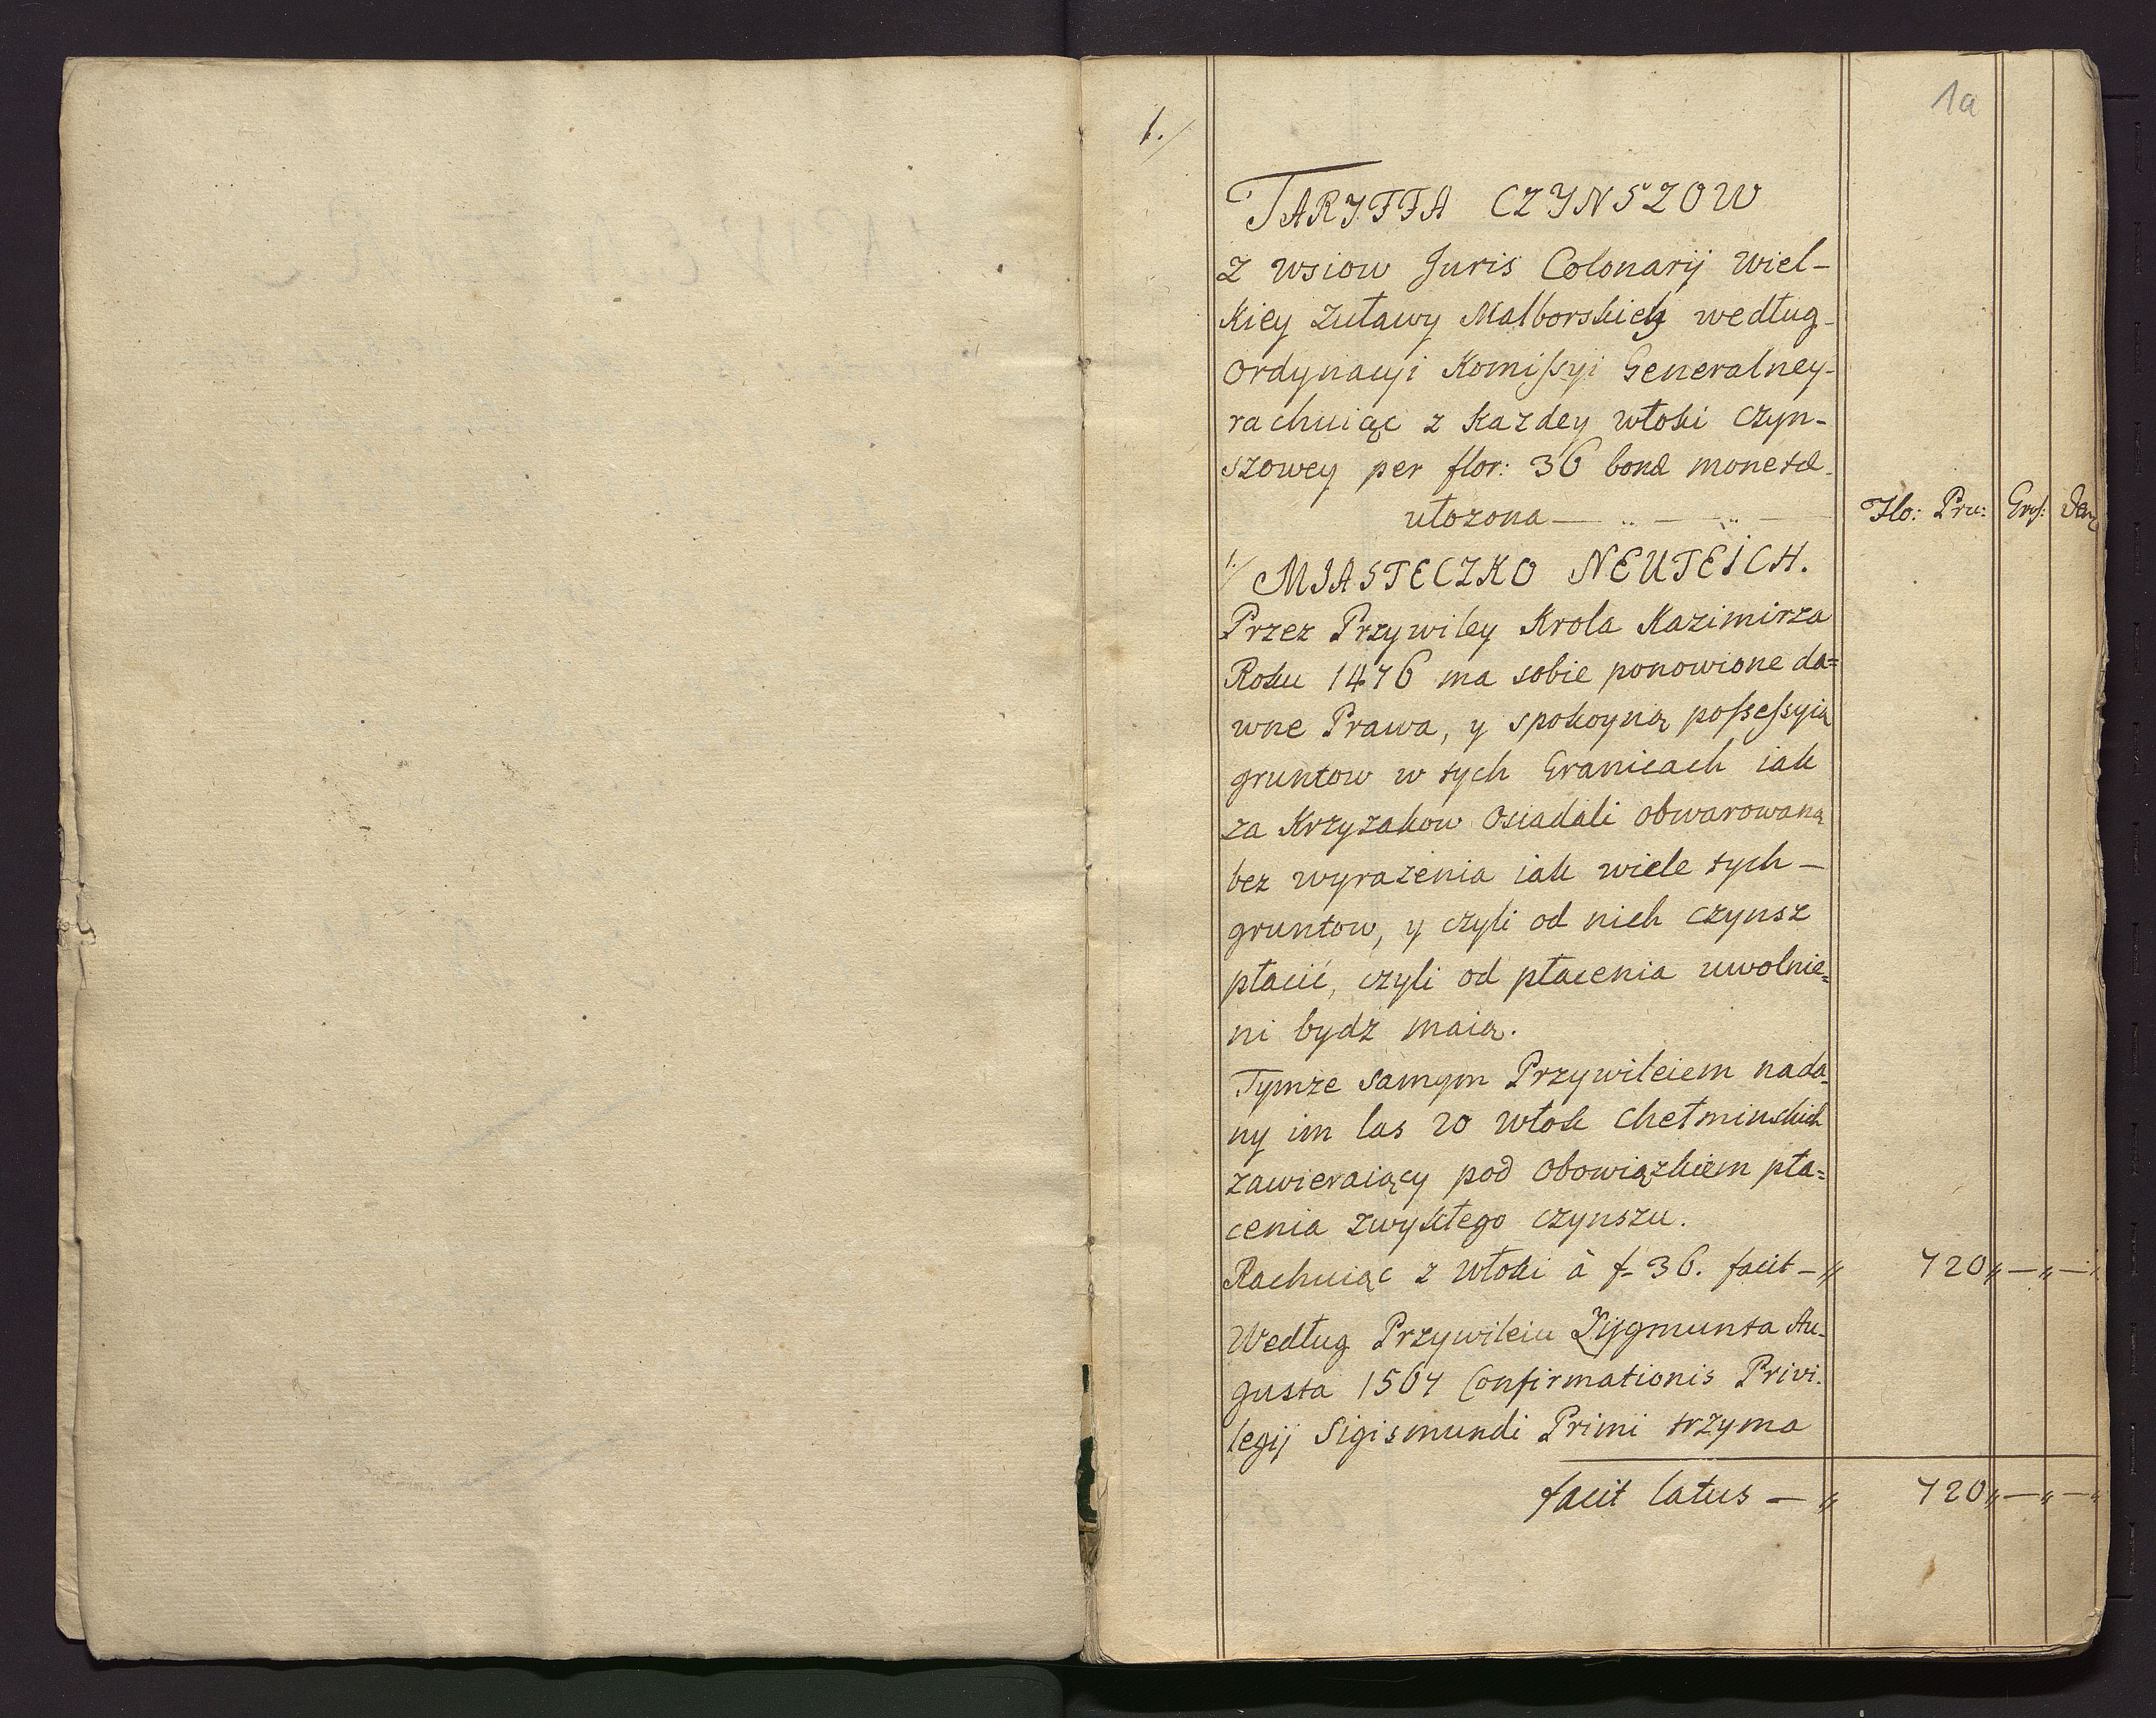 1a
1./
TARYFFA CZYNSZOW
z wsiow Juris Colonarij wiel-
kiey Zuławy Malborskiey według
ordynacyi Komissyi Generalney
rachuiąc z każdey włoki czyn-
szowey per flor: 36 bonæ monetæ
ułozona — „ — „ — Flo: Pru: Gros: Den
1./ MIASTECZKO NEUTEICH.
Przez Przywiley Krola Kazimirza
Roku 1476 ma sobie ponowione da=
wne Prawa, y spokoyną possessyią
gruntow w tych Granicach iak
za Krzyzakow osiadali obwarowaną
bez wyrażenia iak wiele tych —
gruntow, y czyli od nich czynsz
płacić, czyli od płacenia uwolnie=
ni bydz maią.
Tymze samym Przywileiem nada=
ny im las 20 włok chełminskich
zawieraiący pod obowiązkiem pła=
cenia zwykłego czynszu.
Rachuiąc z włoki à f- 36. facit — „ 720 „ — „ — „
Według Przywileiu Zygmunta Au-
gusta 1567 Confirmationis Privi-
legij Sigismundi Primi trzyma
facit latus — „ 720 „ — „ — „